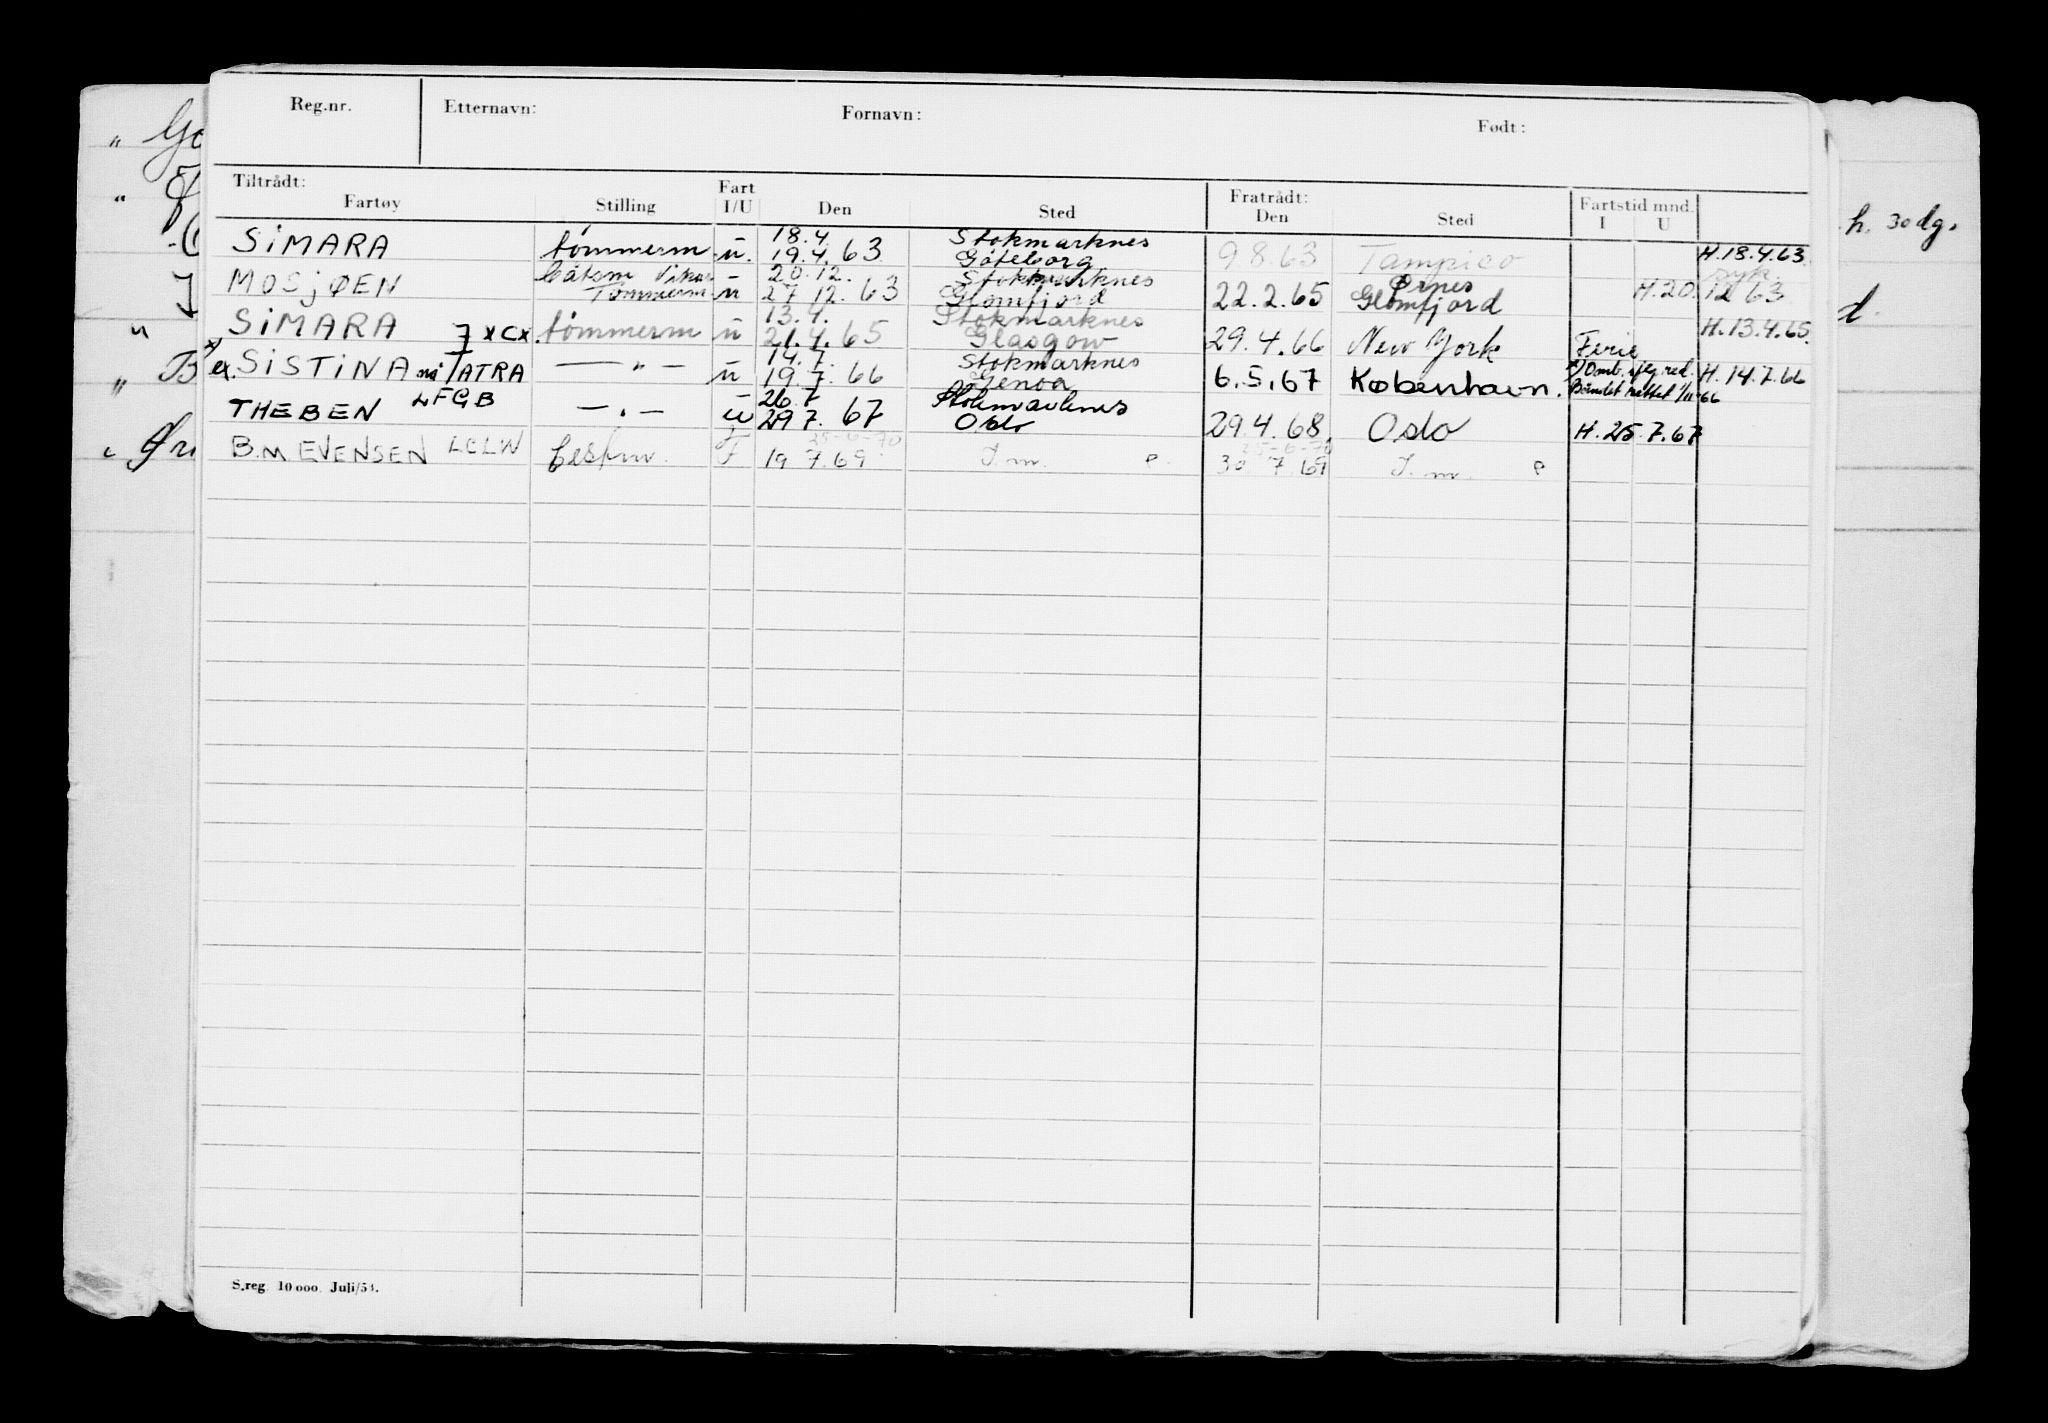 Reg.nr. Etternavn: Fornavn: Født:
Tiltrådt: Fart Fratrådt: Fartstid mnd.
Fartøy Stilling I/U Den Sted Den Sted I U
SiMARA tømmerm u. 18.4. Stokmarknes 9 8.63 Tampico H.18.4.63.
19.4.63 Göteborg syk.
MOSjØEN Båtsm Vikar 20.12. Stokmarknes Ørnes
Tømmerm u 27 12. 63 Glomfjord 22.2.65 Glomfjord H.20. 12 63
SiMARA JXCX. tømmerm u 13.4. Stokmarknes H.13.4.65.
21.4.65 Glasgow 29.4.66 New York Ferie
ex. SiSTiNA nå TATRA — " — u 14.7. Stokmarknes H.14.7.66
LFGB 19.7.66 Genoa 6.5.67 København. 1/11 66
THEBEN — " — u 26.7 Stokmarknes
29 7. 67 Oslo 29.4.68. Oslo H.25.7.67
25-6-70 25-6-70
B.M EVENSEN LCLW F 19 7.69 I.m. e. 30 7.69 I.m. e
h. 30 dg.
S.reg. 10 000. Juli/54.